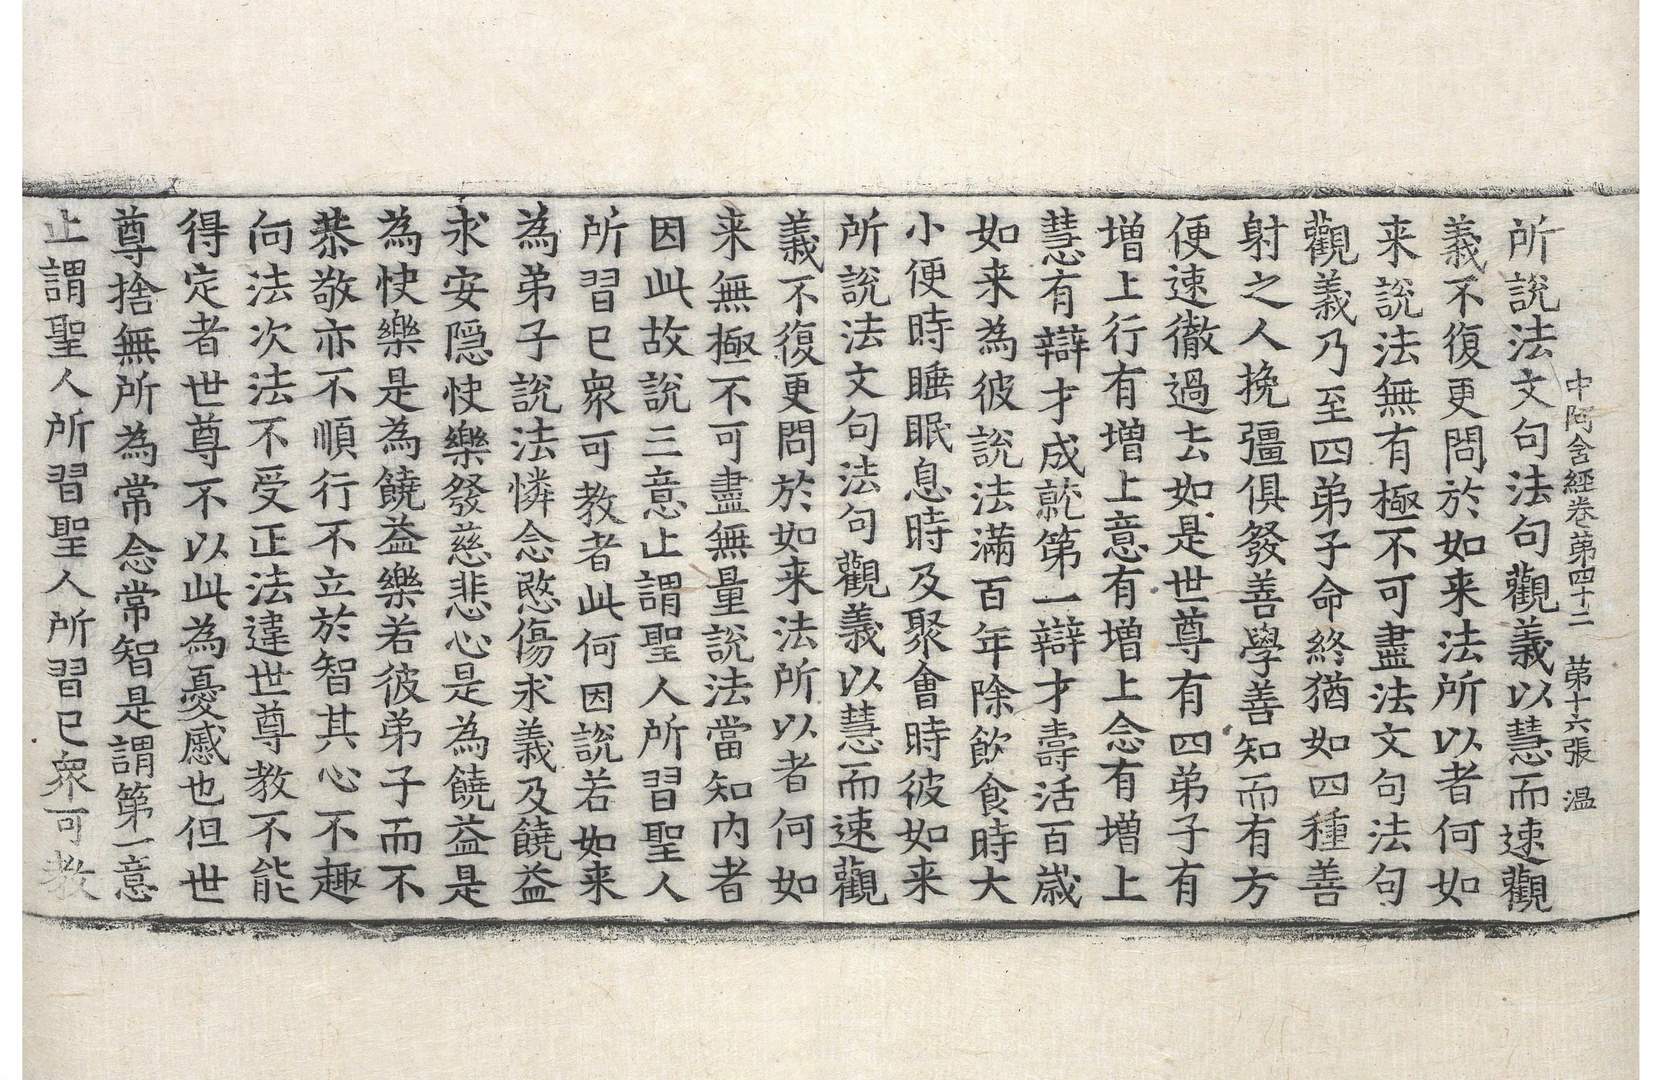 中阿含經卷第四十二　第十六張　溫
所說法文句法句觀義以慧而速觀
義不復更問於如来法所以者何如
来說法無有極不可盡法文句法句
觀義乃至四弟子命終猶如四種善
射之人挽彊俱發善學善知而有方
便速徹過去如是世尊有四弟子有
增上行有增上意有增上念有增上
慧有辯才成就第一辯才壽活百歲
如来為彼說法滿百年除飲食時大
小便時睡眠息時及聚會時彼如来
所說法文句法句觀義以慧而速觀
義不復更問於如来法所以者何如
来無極不可盡無量說法當知內者
因此故說三意止謂聖人所習聖人
所習已衆可教者此何因說若如来
為弟子說法憐念愍傷求義及饒益
求安隱快樂發慈悲心是為饒益是
為快樂是為饒益樂若彼弟子而不
恭敬亦不順行不立於智其心不趣
向法次法不受正法違世尊教不能
得定者世尊不以此為憂慼也但世
尊捨無所為常念常智是謂第一意
止謂聖人所習聖人所習已衆可教